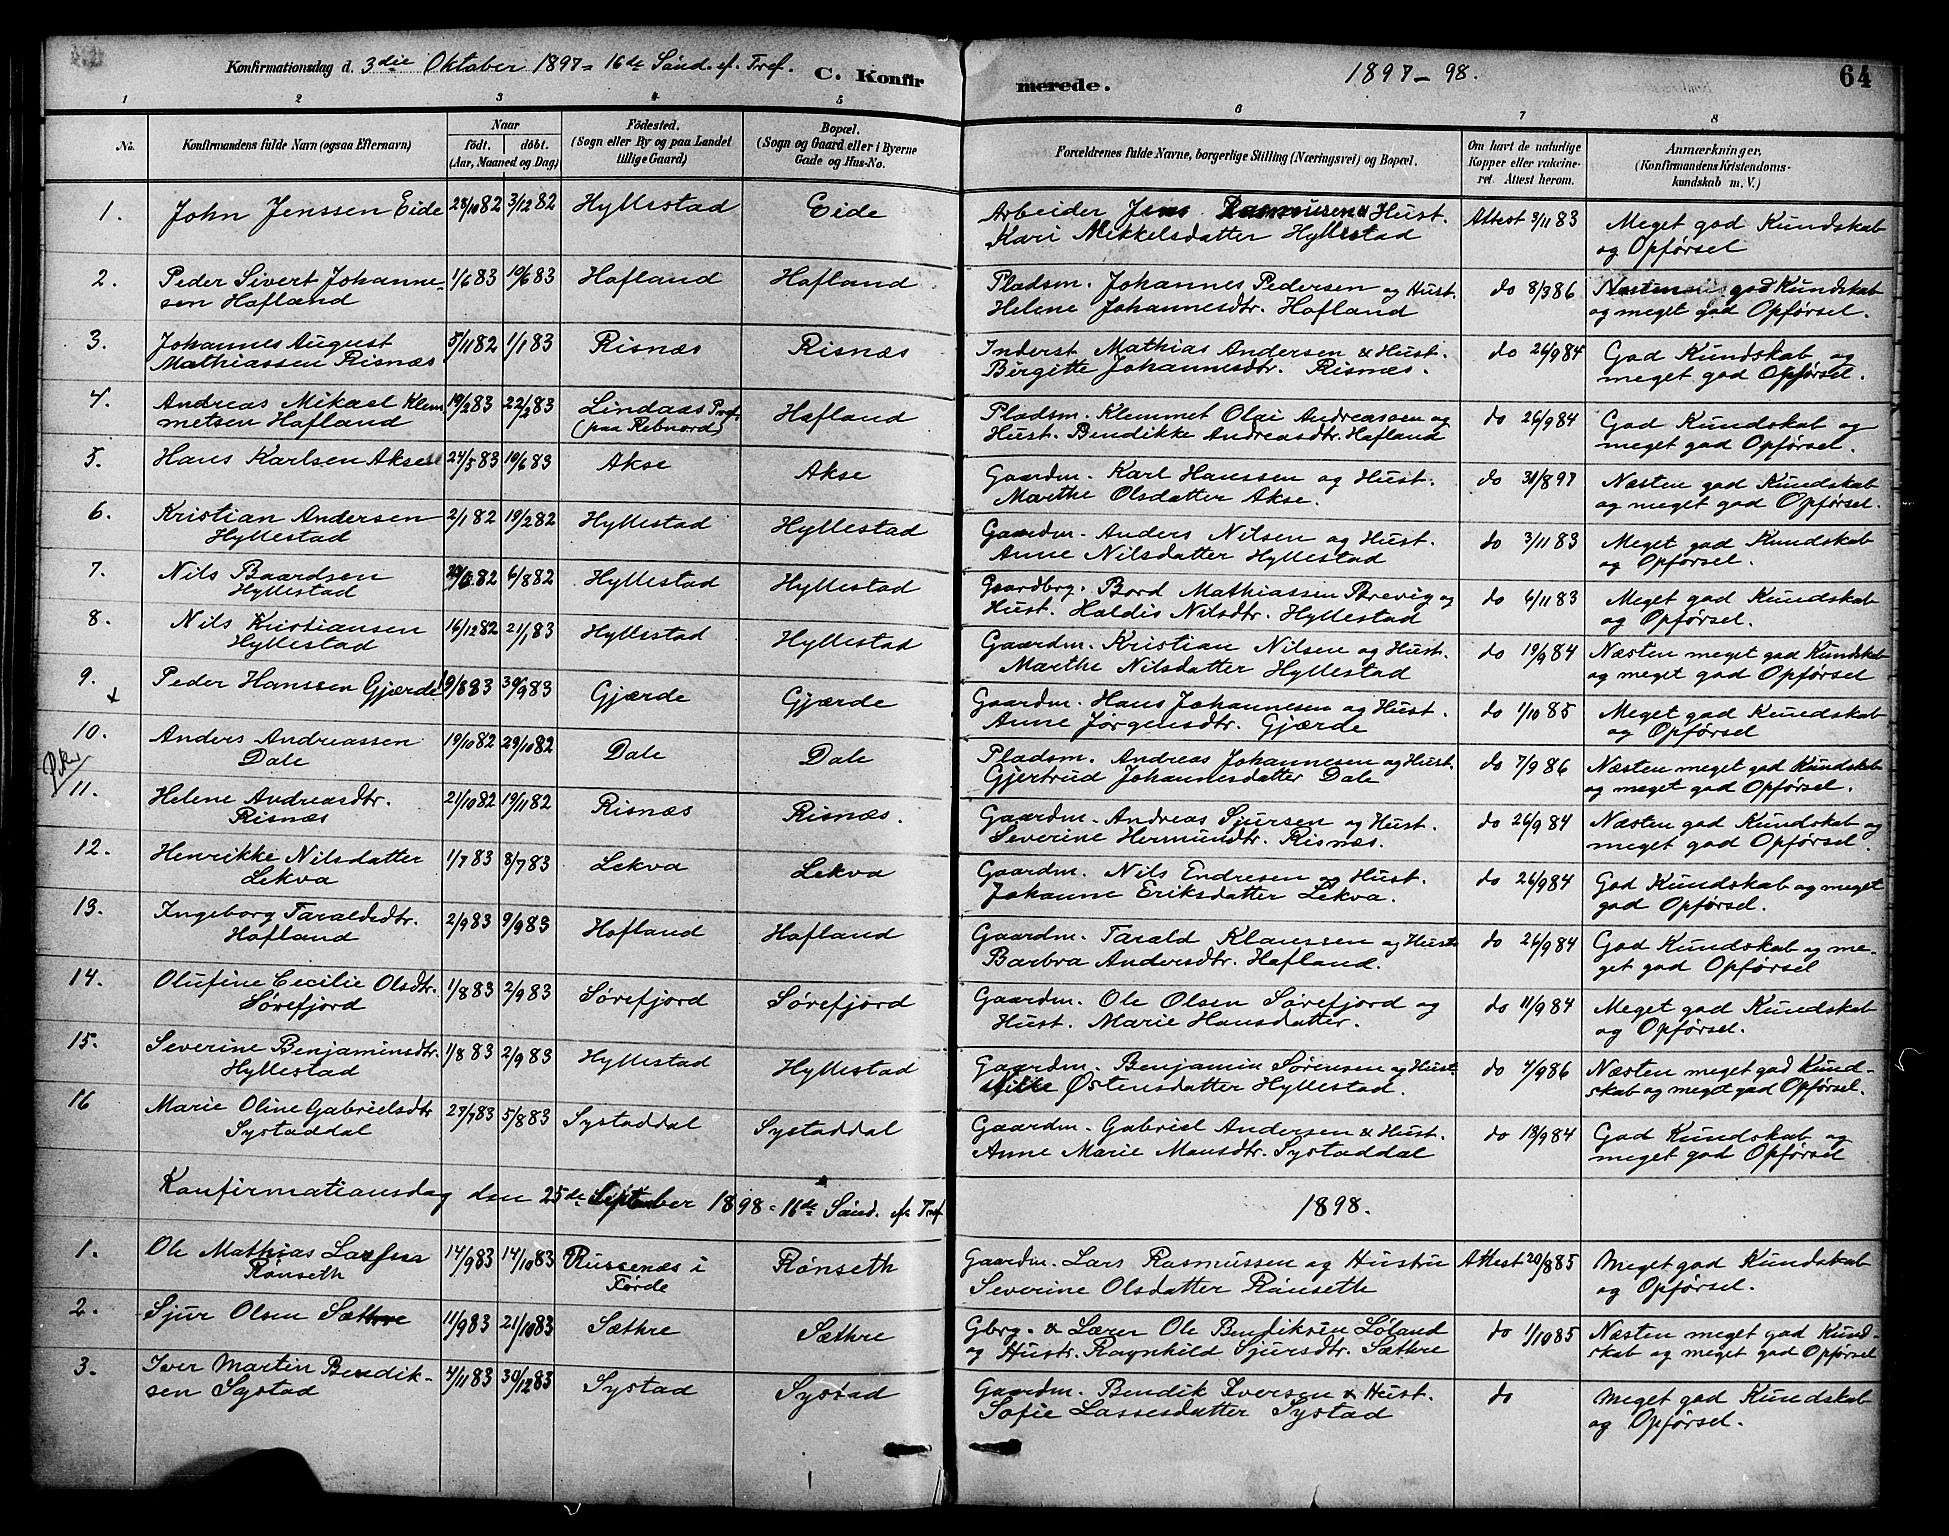 Konfirmationsdag d. 3die Oktober 1897 = 16de Sønd. ef. Tref.
C. Konfirmerede.
1897-98.
64
1 2 3 4 5 6 7 8
No.
Konfirmandens fulde Navn (ogsaa Efternavn)
Naar
født. døbt.
(Aar, Maaned og Dag)
Fødested.
(Sogn eller By og paa Landet
tillige Gaard)
Bopæl.
(Sogn og Gaard eller i Byerne
Gade og Hus-No.
Forældrenes fulde Navne, borgerlige Stilling (Næringsvei) og Bopæl.
Om havt de naturlige
Kopper eller vakcine-
ret. Attest herom.
Anmærkninger.
(Konfirmandens Kristendoms-
kundskab m. V.)
1. John Jenssen Eide 28/10 82 3/12 82 Hyllestad Eide Arbeider Jens Rasmussen & Hust. Attest 3/11 83 Meget god Kundskab
Kari Mikkelsdatter Hyllestad og Opførsel
2. Peder Sivert Johanne- 1/6 83 10/6 83 Hafland Hafland Pladsm. Johannes Pedersen og Hust. do 8/3 86 Næsten god Kundskab
sen Hafland Helene Johannesdtr. Hafland og meget god Opførsel.
3. Johannes August 5/11 82 1/1 83 Risnæs Risnæs Inderst Mathias Andersen & Hust. do 26/9 84 God Kundskab og
Mathiassen Risnæs Birgitte Johannesdtr. Risnæs. meget god Opførsel.
4. Andreas Mikael Klem 19/2 83 22/2 83 Lindaas Præ Hafland Pladsm. Klemmet Olai Andreassen og do 26/9 84 God Kundskab og
metsen Hafland (paa Rebnord) Hust. Bendikke Andreasdtr. Hafland meget god Opførsel.
5. Hans Karlsen Akse 24/5 83 10/6 83 Akse Akse Gaardm. Karl Hanssen og Hust. do 31/8 97 Næsten god Kundskab
Marthe Olsdatter Akse. og meget god Opførsel.
6. Kristian Andersen 2/1 82 19/2 82 Hyllestad Hyllestad Gaardm. Anders Nilsen og Hust. do 3/11 83 Meget god Kundskab
Hyllestad Anne Nilsdatter Hyllestad og Opførsel.
7. Nils Baardsen 82 6/8 82 Hyllestad Hyllestad Gaardbrg. Bord Mathiassen og do 6/11 83 Meget god Kundskab
Hyllestad Hust. Haldis Nilsdtr. Hyllestad og Opførsel.
8. Nils Kristiansen 16/12 82 21/1 83 Hyllestad Hyllestad Gaardm. Kristian Nilsen og Hust. do 19/9 84 Næsten meget god Kundskab
Hyllestad Marthe Nilsdatter Hyllestad og meget god Opførsel
9. Peder Hanssen Gjærde 9/8 83 30/9 83 Gjærde Gjærde Gaardm. Hans Johannesen og Hust. do 1/10 85 Meget god Kundskab
Anne Jørgensdtr. Gjærde og Opførsel
10. Anders Andreassen 19/10 82 29/10 82 Dale Dale Pladsm. Andreas Johannesen og Hust. do 7/9 86 Næsten meget god Kundskab
Dale Gjertrud Johannesdatter Dale og meget god Opførsel.
Piker
11. Helene Andreasdtr. 21/10 82 19/11 82 Risnæs Risnæs. Gaardm. Andreas Sjursen og Hust. do 26/9 84 Næsten god Kundskab og
Risnæs Severine Hermundtr. Risnæs. meget god Opførsel.
12. Henrikke Nilsdatter 1/7 83 8/7 83 Lekva Lekva Gaardm. Nils Endresen og Hust. do 26/9 84 God Kundskab og meget
Lekva Johanne Eriksdatter Lekva. god Opførsel.
13. Ingeborg Taraldsdtr. 2/9 83 9/9 83 Hafland Hafland Gaardm. Tarald Klaussen og Hust. do 26/9 84 God Kundskab og me-
Hafland Barbra Andersdtr. Hafland. get god Opførsel
14. Olufine Cecilie Olsdtr. 1/8 83 2/9 83 Sørefjord Sørefjord Gaardm. Ole Olsen Sørefjord og do 11/9 84 Meget god Kundskab
Sørefjord Hust. Marie Hansdatter. og Opførsel.
15. Severine Benjaminsdtr. 1/8 83 2/9 83 Hyllestad Hyllestad Gaardm. Benjamin Sørensen og Hust do 7/9 86 Næsten meget god Kund-
Hyllestad Østensdatter Hyllestad. skab og meget god Opførsel.
16 Marie Oline Gabrielsdtr 27/7 83 5/8 83 Systaddal Systaddal Gaardm. Gabriel Andersen & Hust. do 13/9 84 God Kundskab og
Systaddal Anne Marie Monsdtr. Systaddal meget god Opførsel
Konfirmationsdag den 25de September 1898 = 16de Sønd. ef. Tref. 1898.
1. Ole Mathias Larssen 14/9 83 14/10 83 Russenæs i Rønseth Gaardm. Lars Rasmussen og Hustru Attest 20/8 85 Meget god Kundskab
Rønseth Førde Severine Olsdatter Rønseth og Opførsel.
2. Sjur Olsen Sæthre 11/9 83 21/10 83 Sæthre Sæthre Gbrg. & Lærer Ole Bendiksen Løland do 1/10 85 Næsten meget god Kund-
og Hustr. Ragnhild Sjursdtr. Sæthre skab og meget god Opførsel
3. Iver Martin Bendik- 4/11 83 30/12 83 Systad Systad Gaardm. Bendik Iversen & Hust. do Meget god Kundskab
sen Systad Sofie Lassesdatter Systad og Opførsel.